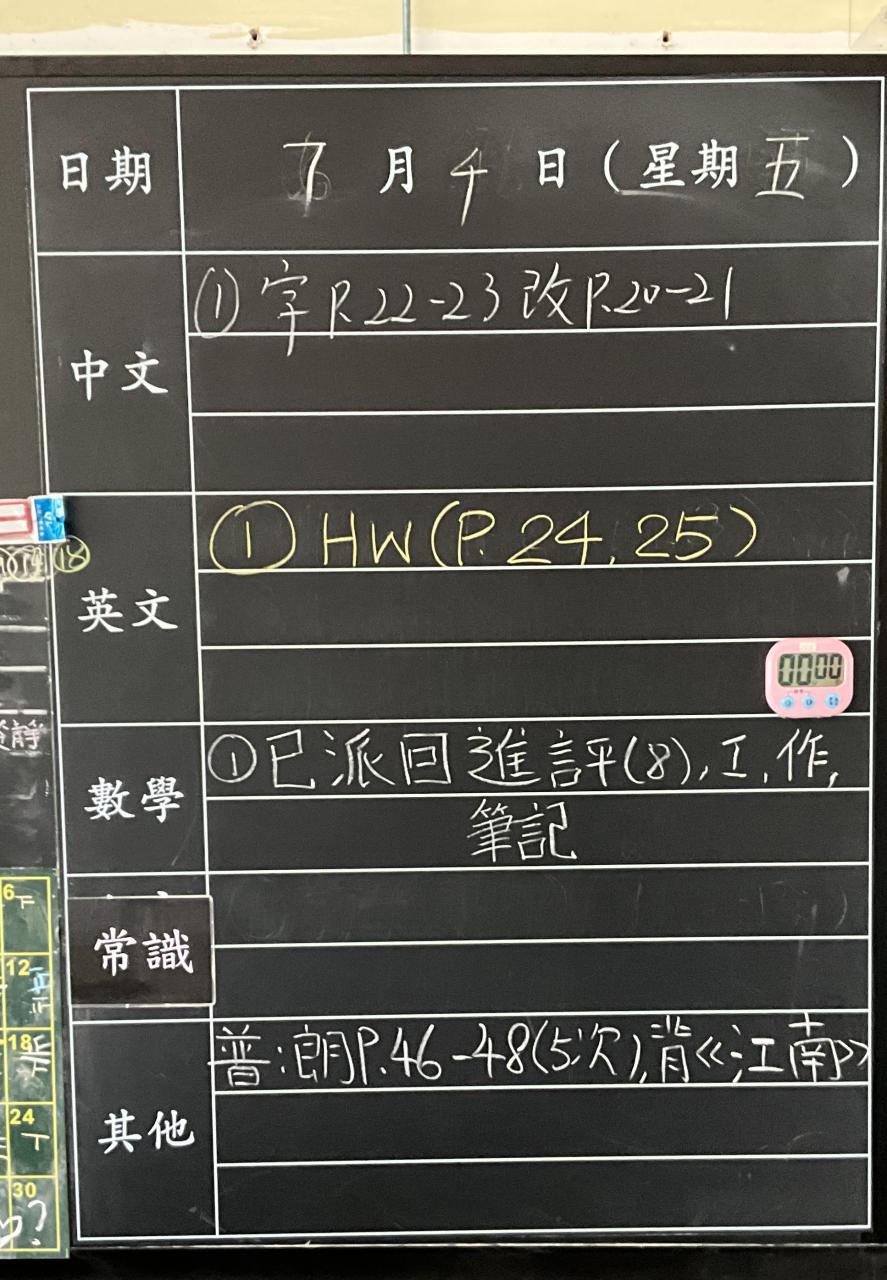 日期 7月4日(星期五)
中文
① 字P.22-23 改P.20-21
英文
① HW(P.24,25)
00 00
數學
①已派回進評(8),工,作,
筆記
常識
其他
普:朗P.46-48(5次),背《江南》
18
靜
6 下
12 正
18
24
30
?